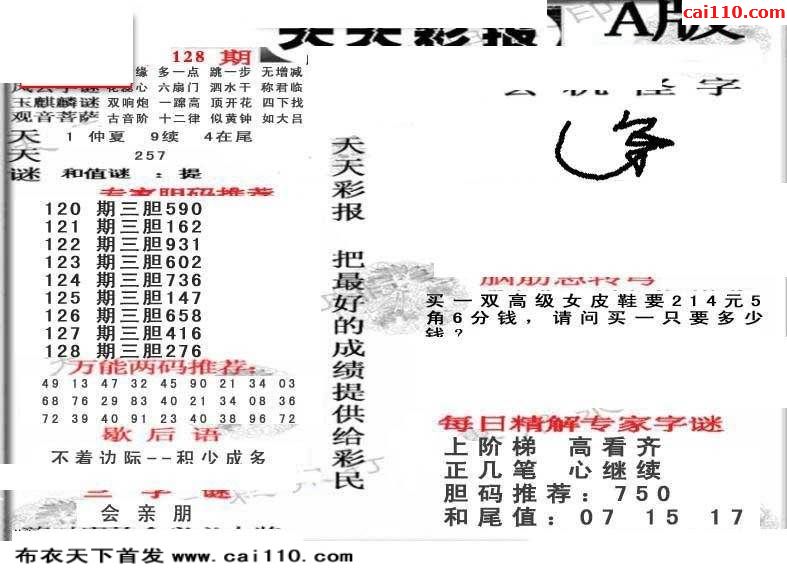 cai110.com
天天彩报 A版
128 期
缘 多一点 跳一步 无增减
花蕊心 六扇门 泗水干 称君临
玉麒麟谜 双响炮 一蹿高 顶开花 四下找
观音菩萨 古音阶 十二律 似黄钟 如大吕
天 1 仲夏 9续 4在尾
天 257
谜 和值谜 : 提
专家胆码推荐
120 期三胆590
121 期三胆162
122 期三胆931
123 期三胆602
124 期三胆736
125 期三胆147
126 期三胆658
127 期三胆416
128 期三胆276
万能两码推荐:
49 13 47 32 45 90 21 34 03
68 76 29 83 40 21 34 08 36
72 39 40 91 23 40 38 96 72
歇后语
不着边际--积少成多
三字谜
会亲朋
天天彩报 把最好的成绩提供给彩民
玄机怪字
脑筋急转弯
买一双高级女皮鞋要214元5
角6分钱，请问买一只要多少
钱?
每日精解专家字谜
上阶梯 高看齐
正几笔 心继续
胆码推荐: 750
和尾值: 07 15 17
布衣天下首发 www.cai110.com